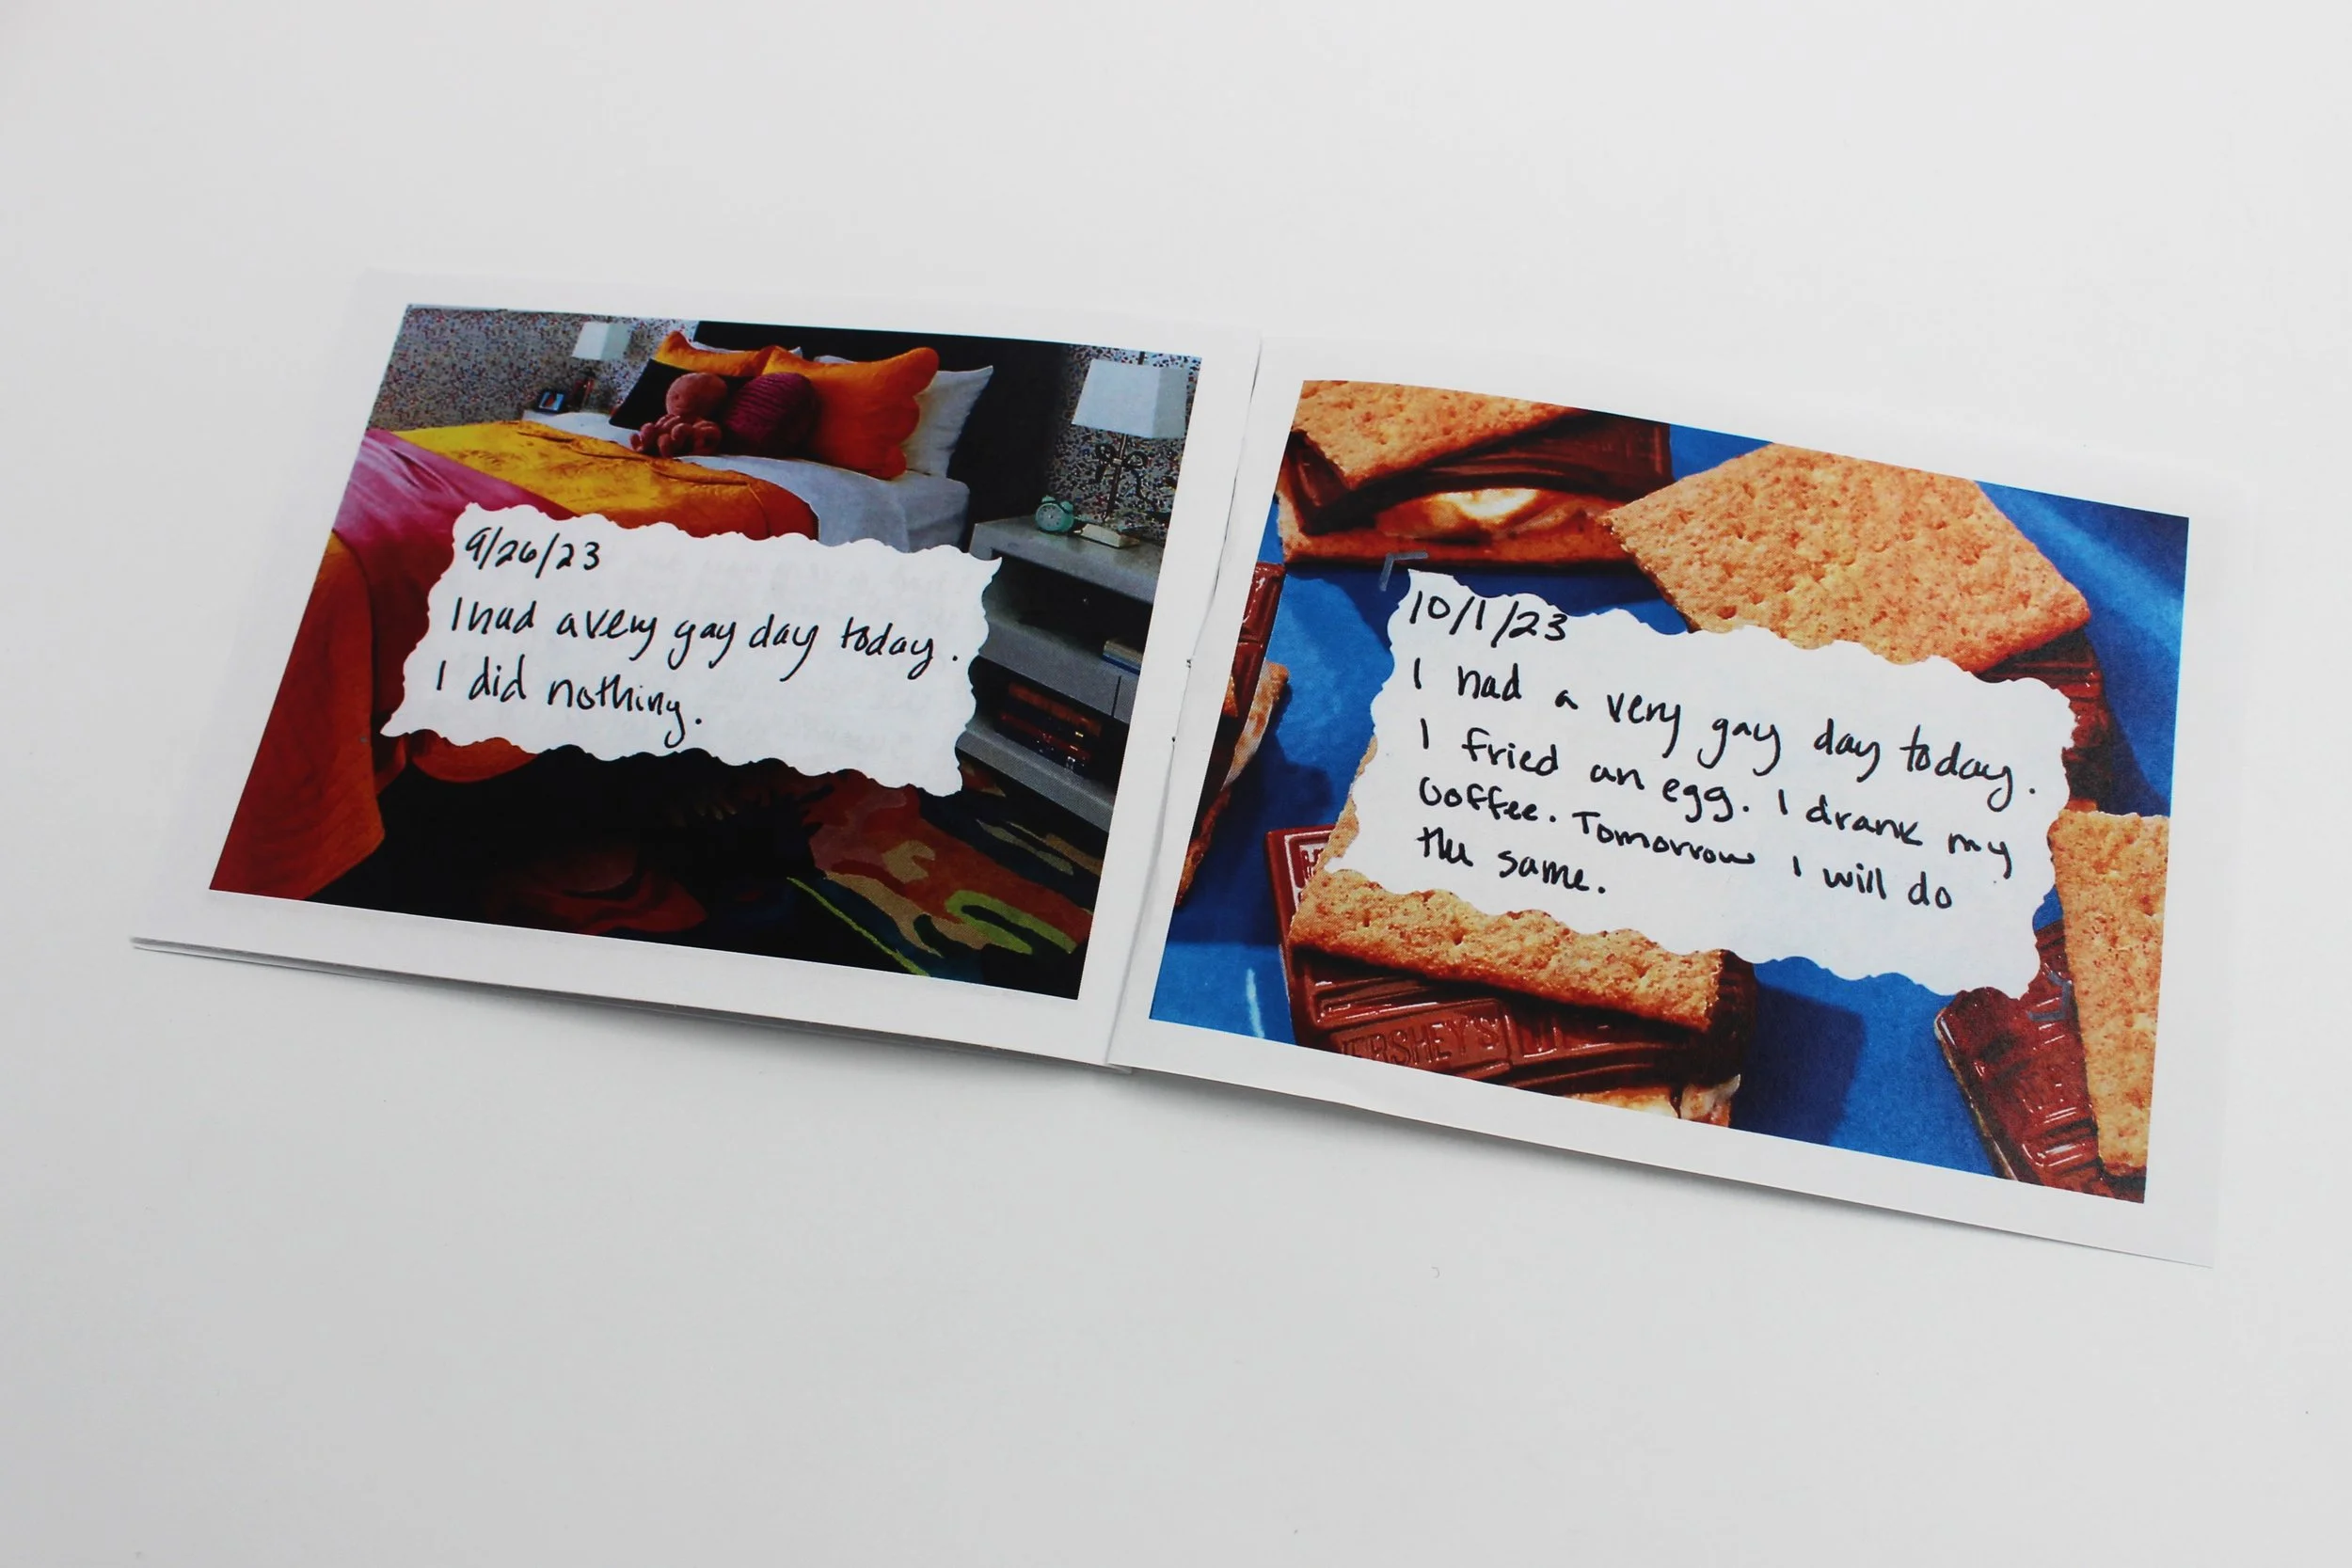 9/26/23
I had a very gay day today.
I did nothing.
10/1/23
I had a very gay day today.
I fried an egg. I drank my
coffee. Tomorrow I will do
the same.
HERSHEY'S